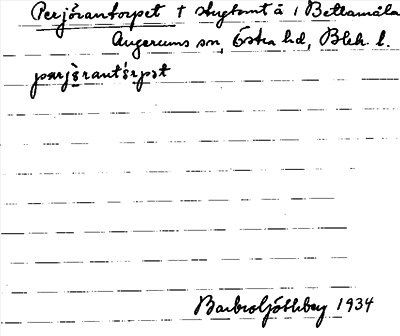 Perjörantorpet † stugtomt å 1 Bettamåla
Augerums sn, Östra hd, Blek. l.
pærjö̀rantórpət
Barbro Göthberg 1934